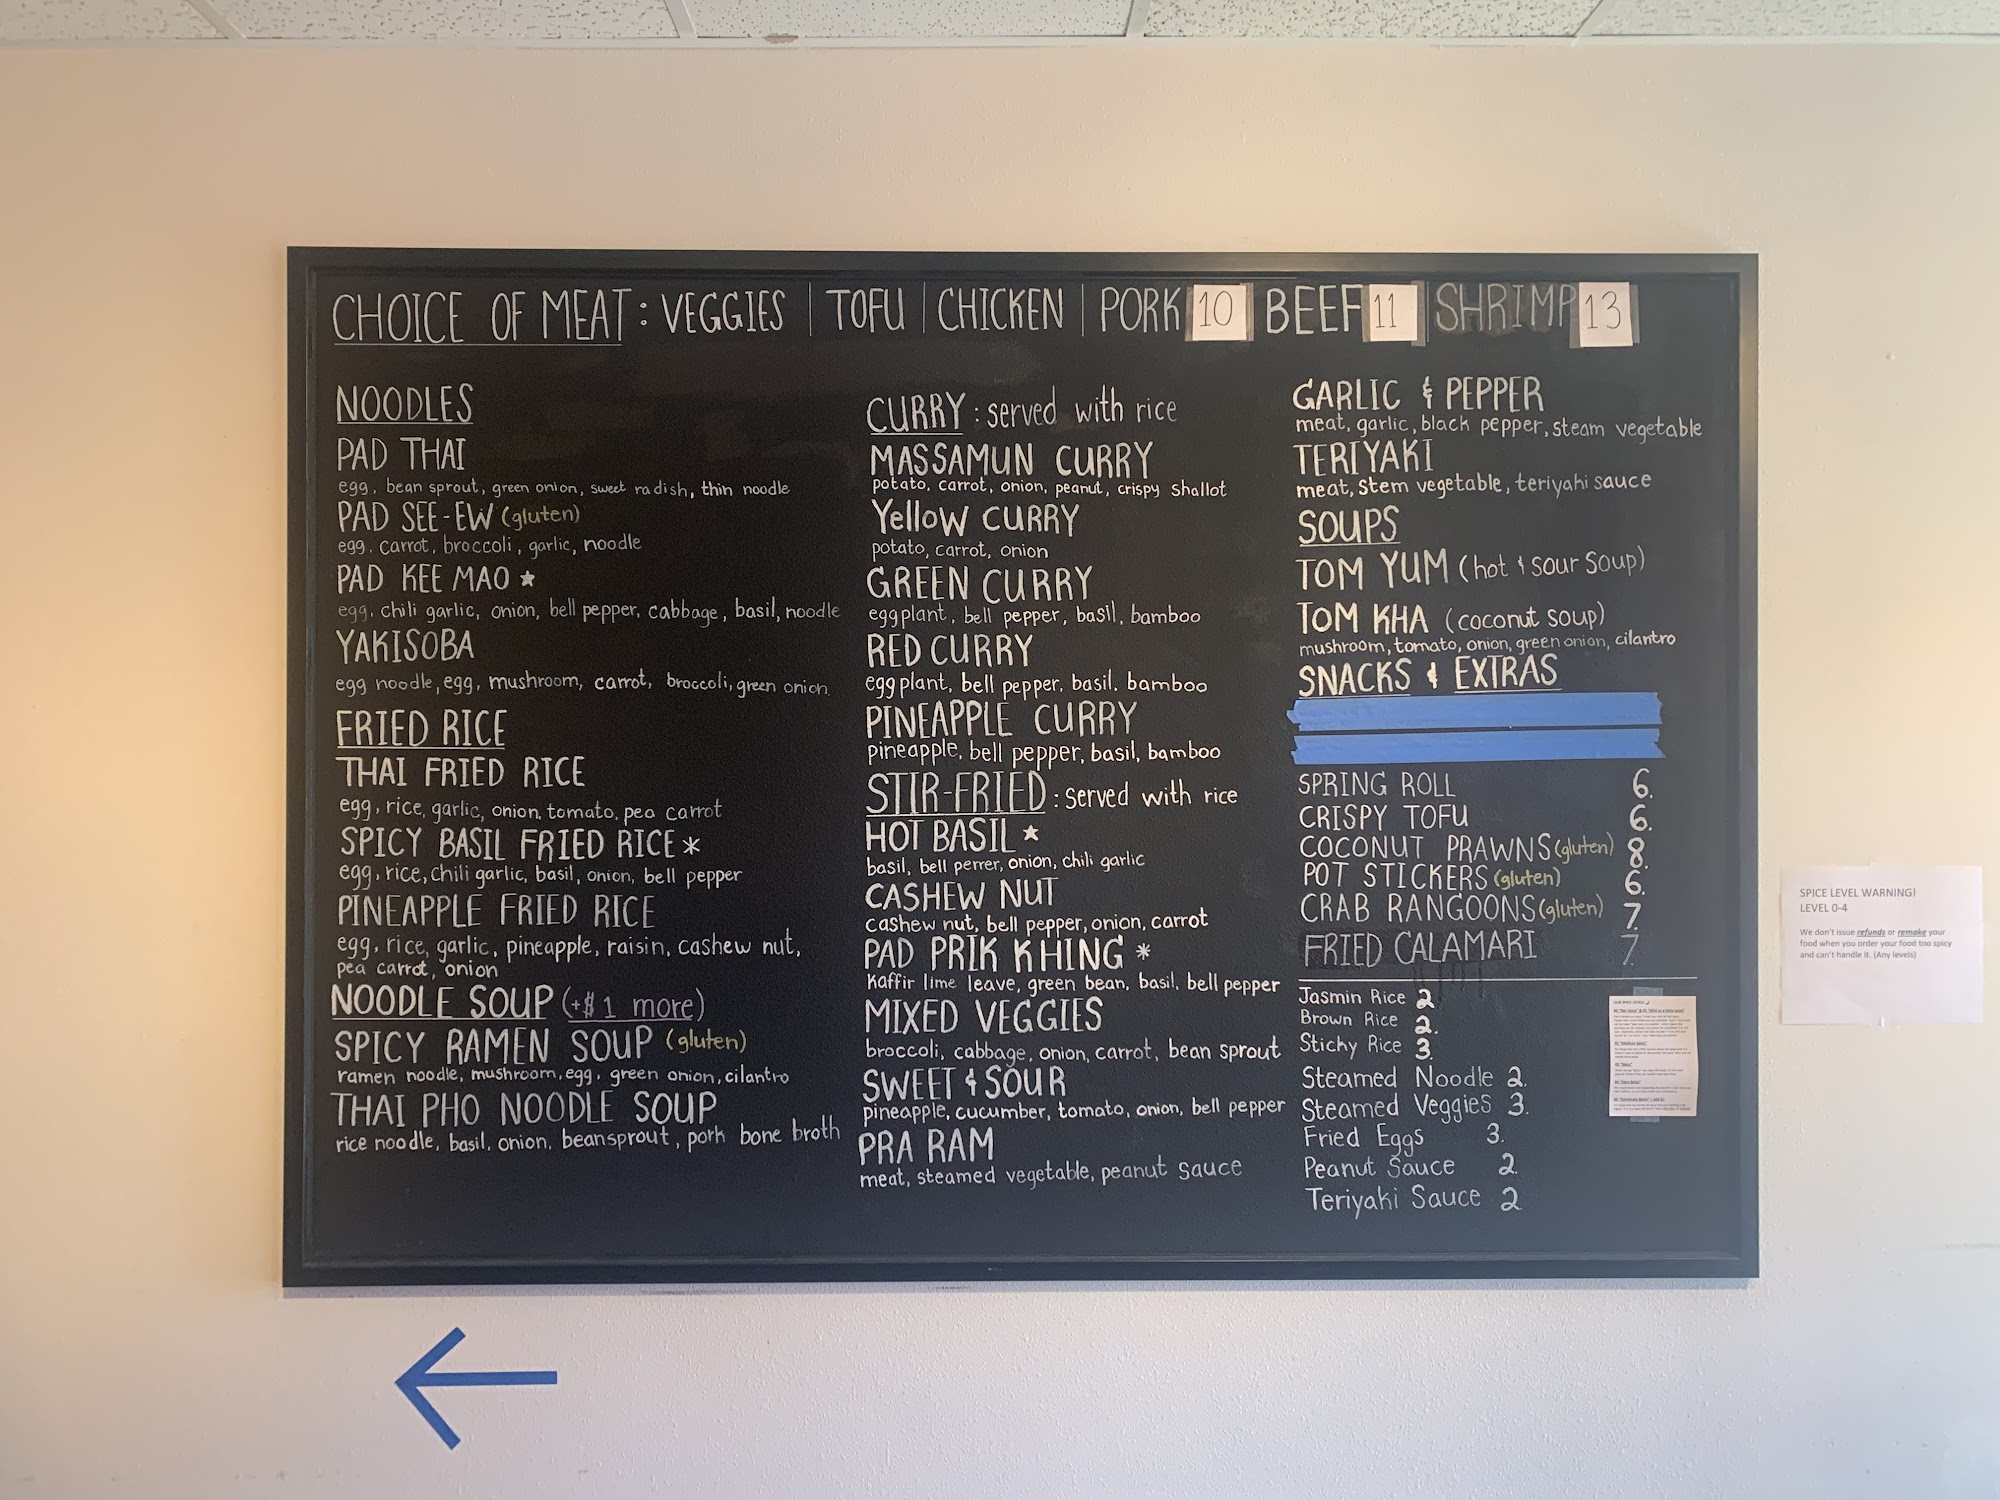 CHOICE OF MEAT: VEGGIES | TOFU | CHICKEN | PORK 10 BEEF 11 SHRIMP 13
NOODLES
PAD THAI
egg, bean sprout, green onion, sweet radish, thin noodle
PAD SEE-EW (gluten)
egg, carrot, broccoli, garlic, noodle
PAD KEE MAO ★
egg, chili garlic, onion, bell pepper, cabbage, basil, noodle
YAKISOBA
egg noodle, egg, mushroom, carrot, broccoli, green onion
FRIED RICE
THAI FRIED RICE
egg, rice, garlic, onion, tomato, pea carrot
SPICY BASIL FRIED RICE *
egg, rice, chili garlic, basil, onion, bell pepper
PINEAPPLE FRIED RICE
egg, rice, garlic, pineapple, raisin, cashew nut,
pea carrot, onion
NOODLE SOUP (+$1 more)
SPICY RAMEN SOUP (gluten)
ramen noodle, mushroom, egg, green onion, cilantro
THAI PHO NOODLE SOUP
rice noodle, basil, onion, beansprout, pork bone broth
CURRY: served with rice
MASSAMUN CURRY
potato, carrot, onion, peanut, crispy shallot
YelloW CURRY
potato, carrot, onion
GREEN CURRY
eggplant, bell pepper, basil, bamboo
RED CURRY
eggplant, bell pepper, basil, bamboo
PINEAPPLE CURRY
pineapple, bell pepper, basil, bamboo
STIR-FRIED: served with rice
HOT BASIL ★
basil, bell perrer, onion, chili garlic
CASHEW NUT
cashew nut, bell pepper, onion, carrot
PAD PRIK KHING *
Kaffir lime leave, green bean, basil, bell pepper
MIXED VEGGIES
broccoli, cabbage, onion, carrot, bean sprout
SWEET & SOUR
pineapple, cucumber, tomato, onion, bell pepper
PRA RAM
meat, steamed vegetable, peanut sauce
GARLIC & PEPPER
meat, garlic, black pepper, steam vegetable
TERIYAKI
meat, stem vegetable, teriyaki sauce
SOUPS
TOM YUM (hot & sour soup)
TOM KHA (coconut soup)
mushroom, tomato, onion, green onion, cilantro
SNACKS & EXTRAS
SPRING ROLL 6.
CRISPY TOFU 6.
COCONUT PRAWNS (gluten) 8.
POT STICKERS (gluten) 6.
CRAB RANGOONS (gluten) 7.
FRIED CALAMARI 7.
Jasmin Rice 2.
Brown Rice 2.
Stichy Rice 3.
Steamed Noodle 2.
Steamed Veggies 3.
Fried Eggs 3.
Peanut Sauce 2.
Teriyaki Sauce 2.
SPICE LEVEL WARNING!
LEVEL 0-4
We don't issue refunds or remake your
food when you order your food too spicy
and can't handle it. (Any levels)